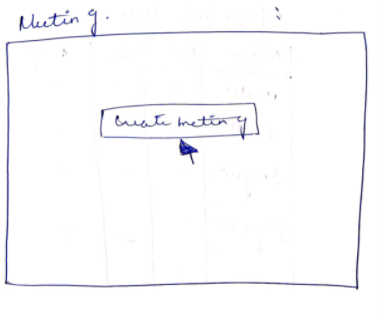 Meeting.
Create meeting